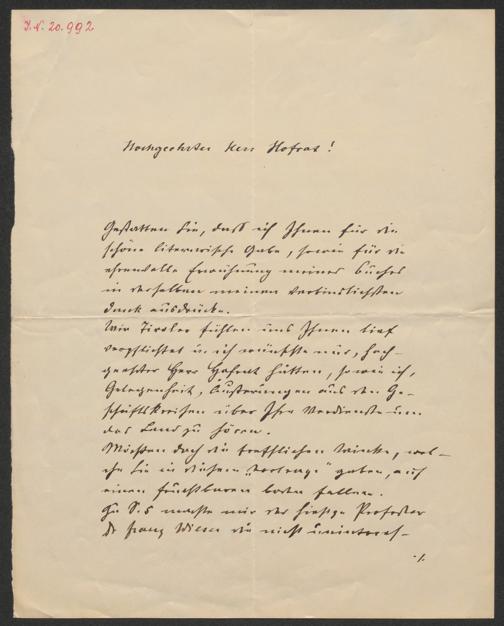 J.N. 20.992
Hochgeehrter Herr Hofrat!
Gestatten Sie, dass ich Ihnen für die
schöne literarische Gabe, sowie für die
ehrenvolle Erwähnung meines Buches
in derselben meinen verbindlichsten
Dank ausdrücke.
Wir Tiroler fühlen uns Ihnen tief
verpflichtet u. ich wünschte nur, hoch-
geehrter Herr Hofrat hätten, so wie ich,
Gelegenheit, Äusserungen aus den Ge-
schäftskreisen über Ihre Verdienste um
das Land zu hören.
Möchten doch die trefflichen Winke, wel-
che Sie in diesem "Vortrage" gaben, auf
einen fruchtbaren Boden fallen.
Zu S. machte mir der hiesige Professor
Dr Franz Wieser die nicht uninteres-
./.